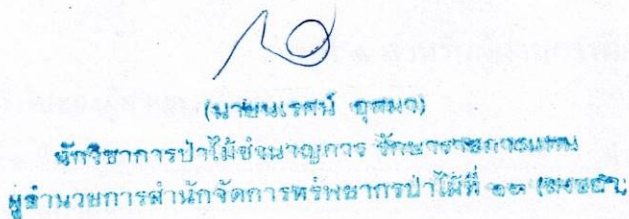 (นายนเรศน์ อุสมา)
นักวิชาการป่าไม้ชำนาญการ รักษาราชการแทน
ผู้อำนวยการสำนักจัดการทรัพยากรป่าไม้ที่ ๑๓ (สงขลา)